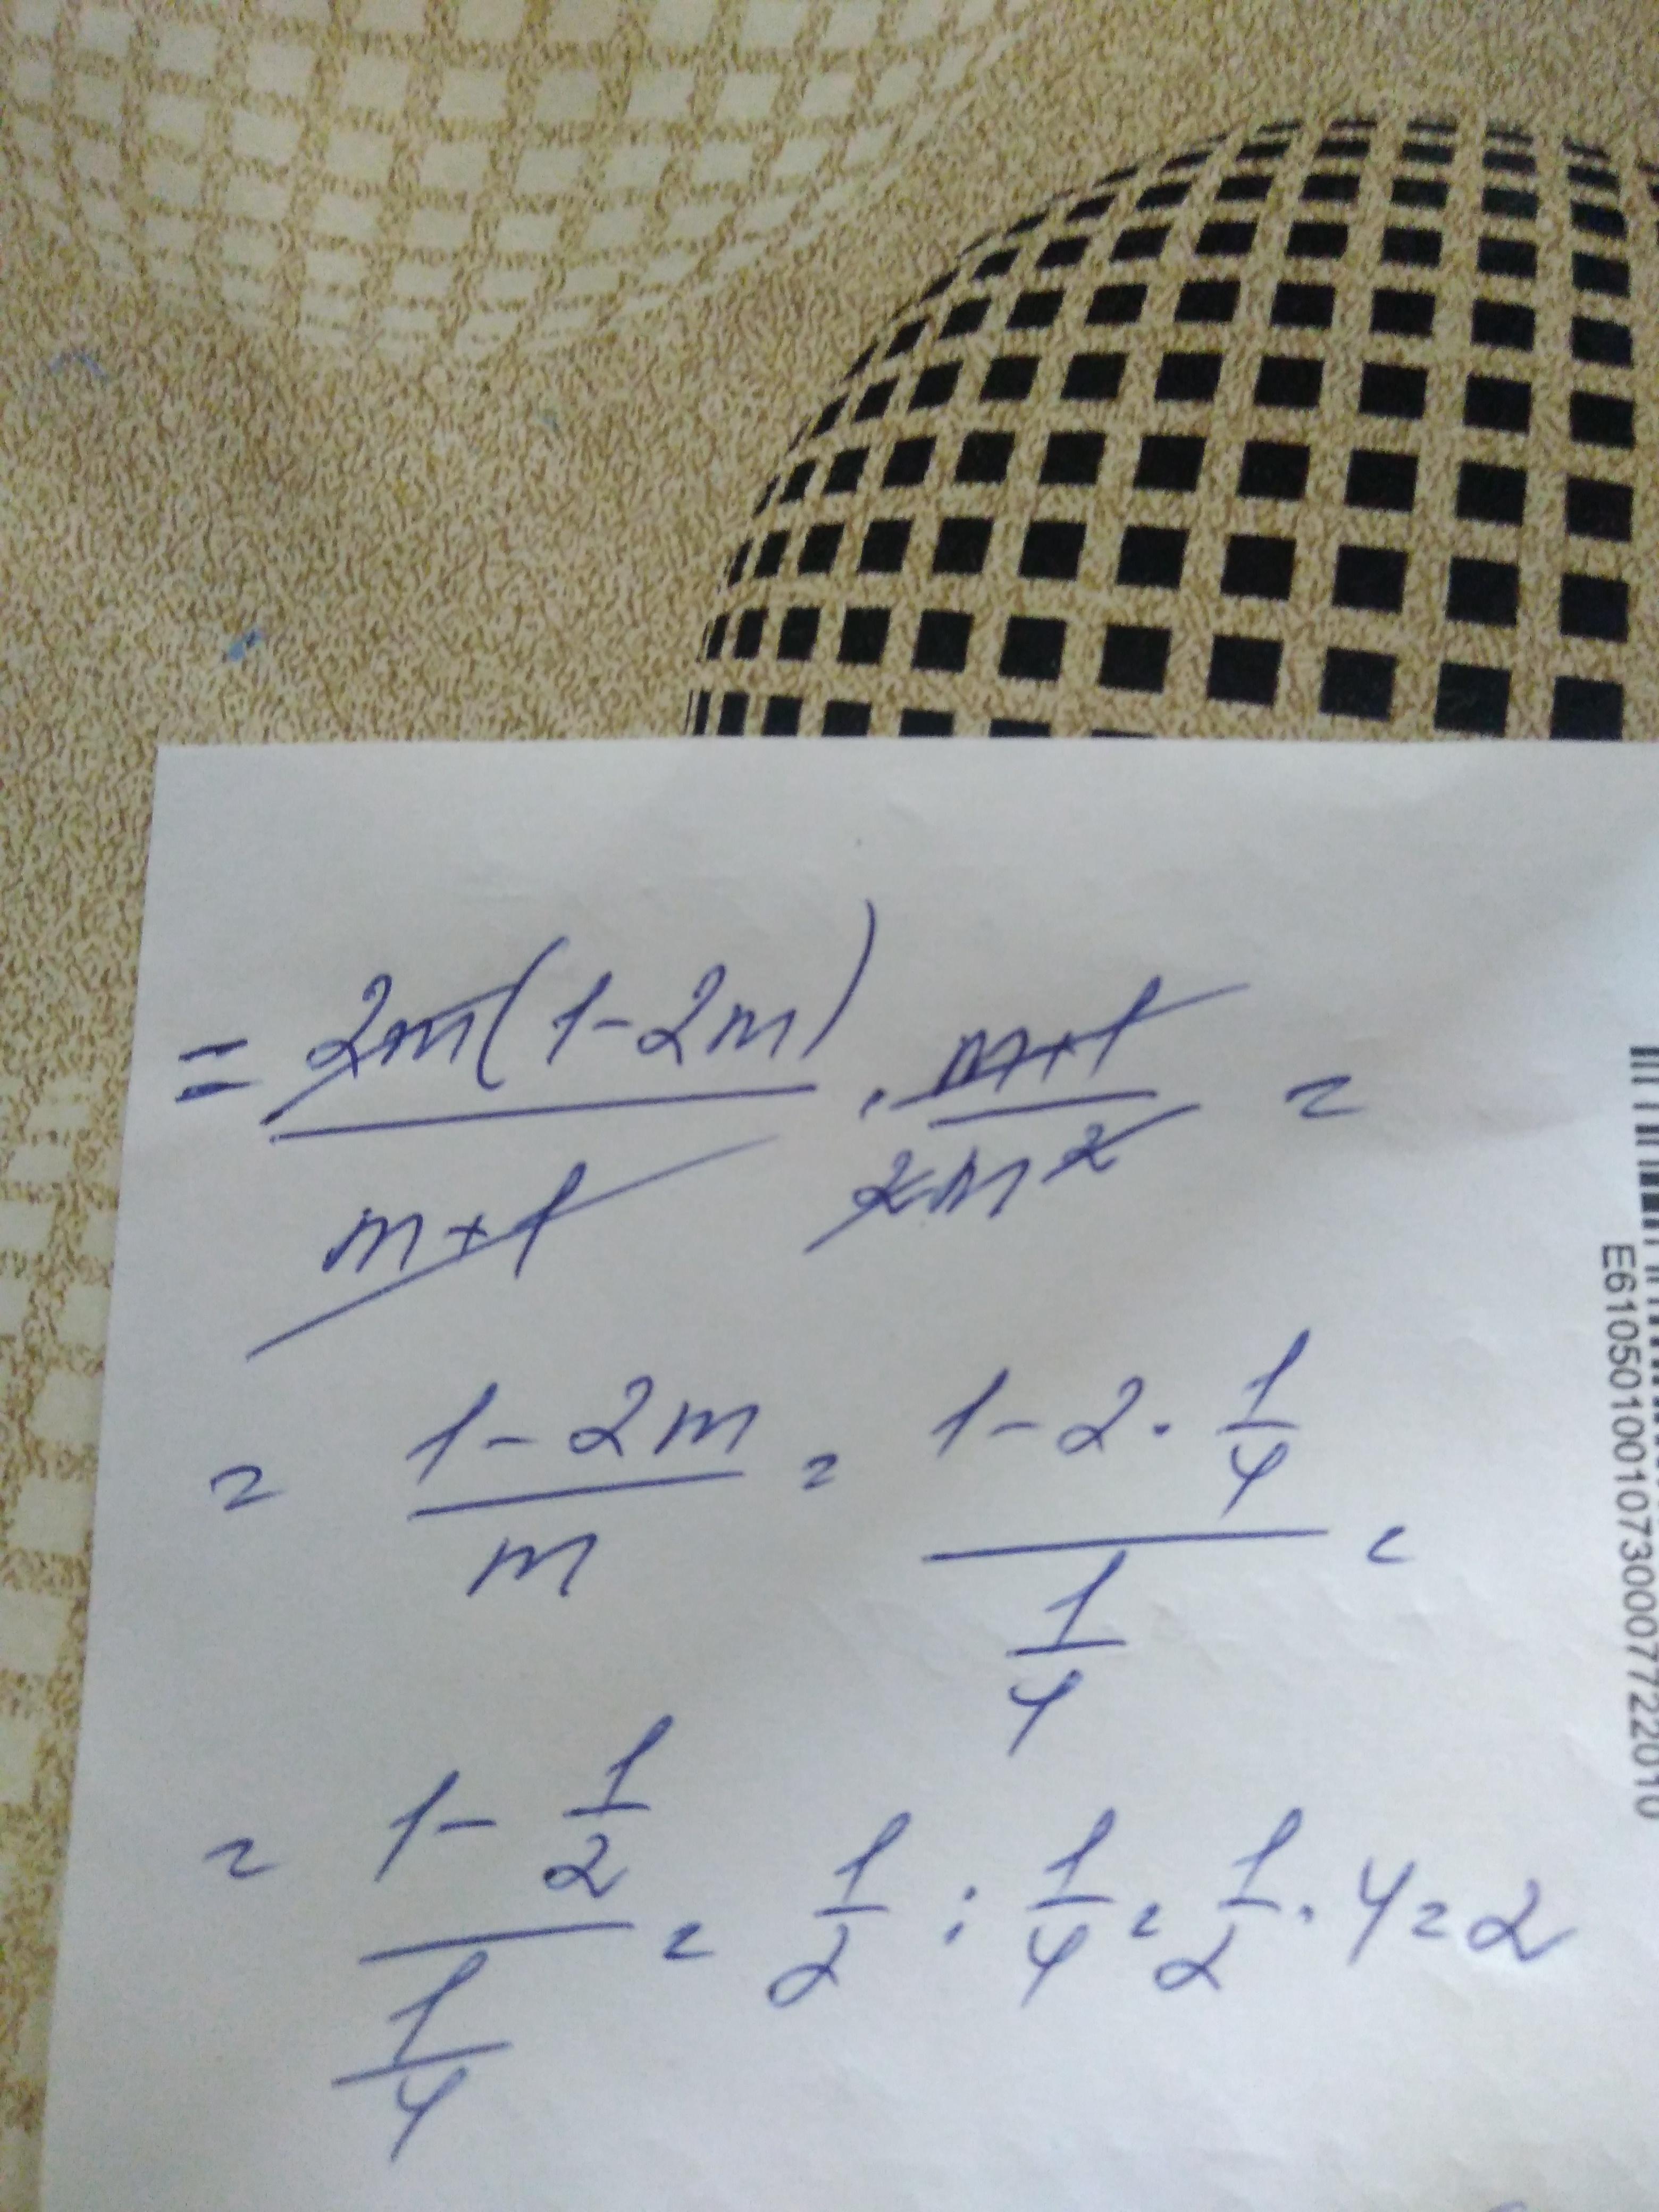 = 2m(1-2m)/m+1 · m+1/2m² =
= 1-2m/m = 1-2·1/4 / 1/4 =
= 1-1/2 / 1/4 = 1/2 : 1/4 = 1/2 · 4 = 2
E610501001073000772201​0